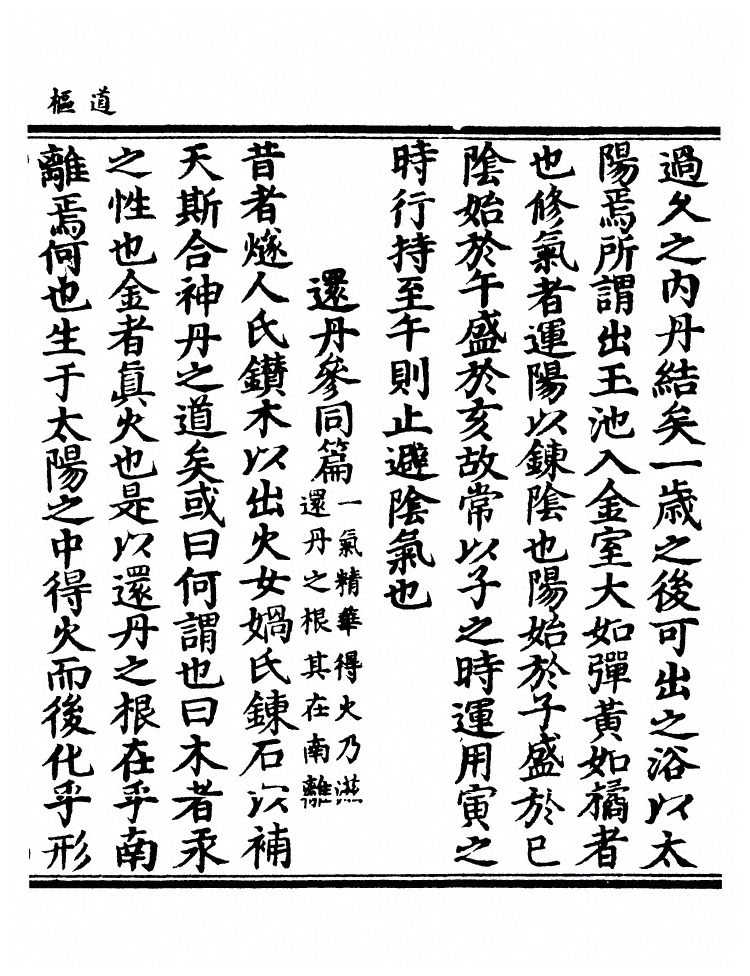 道樞
過久之内丹結矣一歳之後可出之浴以太
陽焉所謂出玉池入金室大如彈黃如橘者
也修氣者運陽以鍊陰也陽始於子盛於巳
陰始於午盛於亥故常以子之時運用寅之
時行持至午則止避陰氣也
還丹參同篇
一氣精華得火乃
還丹之根其在南離
昔者燧人氏鑚木以出火女媧氏鍊石以補
天斯合神丹之道矣或曰何謂也曰木者汞
之性也金者眞火也是以還丹之根在乎南
離焉何也生于太陽之中得火而後化乎形